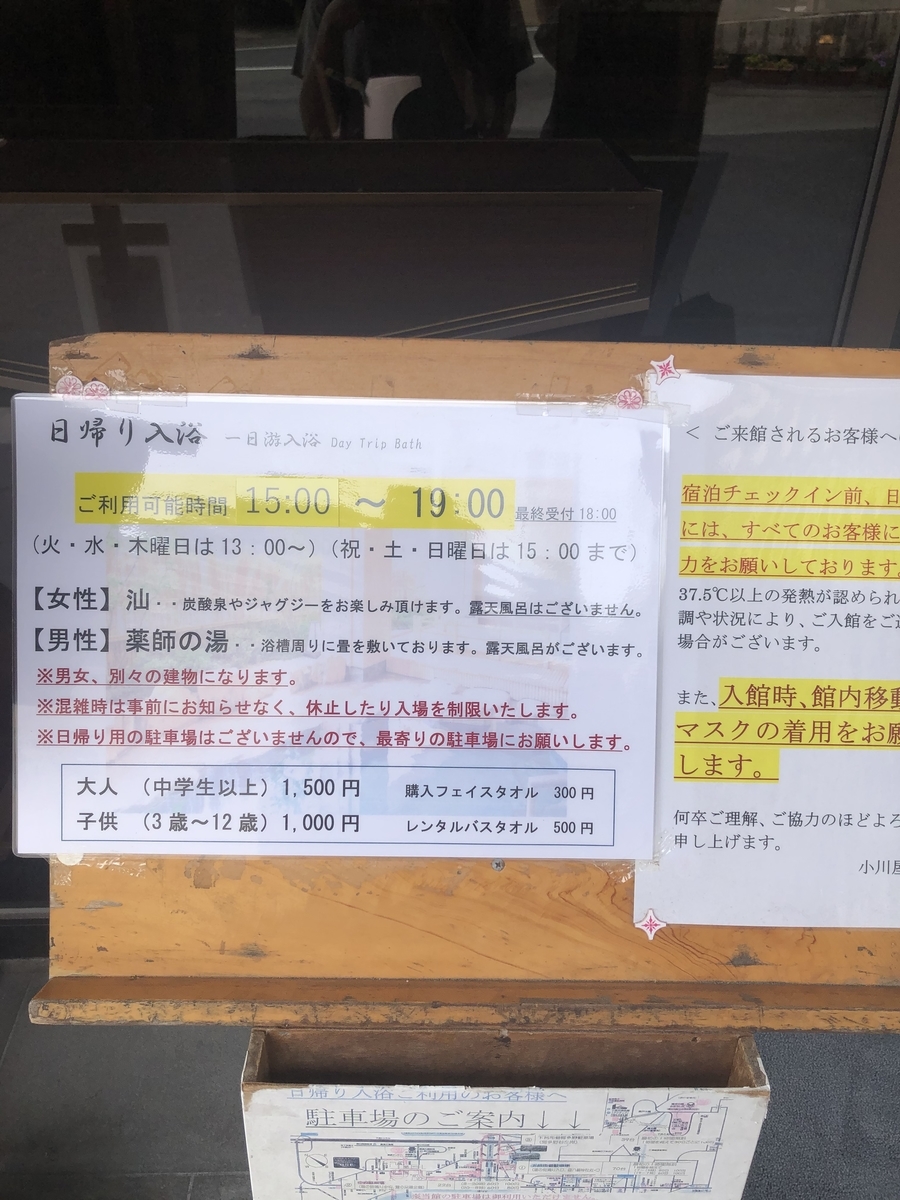 日帰り入浴 一日游入浴 Day Trip Bath
ご利用可能時間 15:00 ～ 19:00 最終受付18:00
（火・水・木曜日は13：00～）（祝・土・日曜日は15：00まで）
【女性】汕・・炭酸泉やジャグジーをお楽しみ頂けます。露天風呂はございません。
【男性】薬師の湯・・浴槽周りに畳を敷いております。露天風呂がございます。
※男女、別々の建物になります。
※混雑時は事前にお知らせなく、休止したり入場を制限いたします。
※日帰り用の駐車場はございませんので、最寄りの駐車場にお願いします。
大人 （中学生以上）1,500円 購入フェイスタオル 300円
子供 （3歳～12歳）1,000円 レンタルバスタオル 500円
＜ ご来館されるお客様へ
宿泊チェックイン前、日
には、すべてのお客様に
力をお願いしております。
37.5℃以上の発熱が認められ
調や状況により、ご入館をご
場合がございます。
また、入館時、館内移動
マスクの着用をお願
します。
何卒ご理解、ご協力のほどよろ
申し上げます。
小川屋
日帰り入浴ご利用のお客様へ
駐車場のご案内↓↓